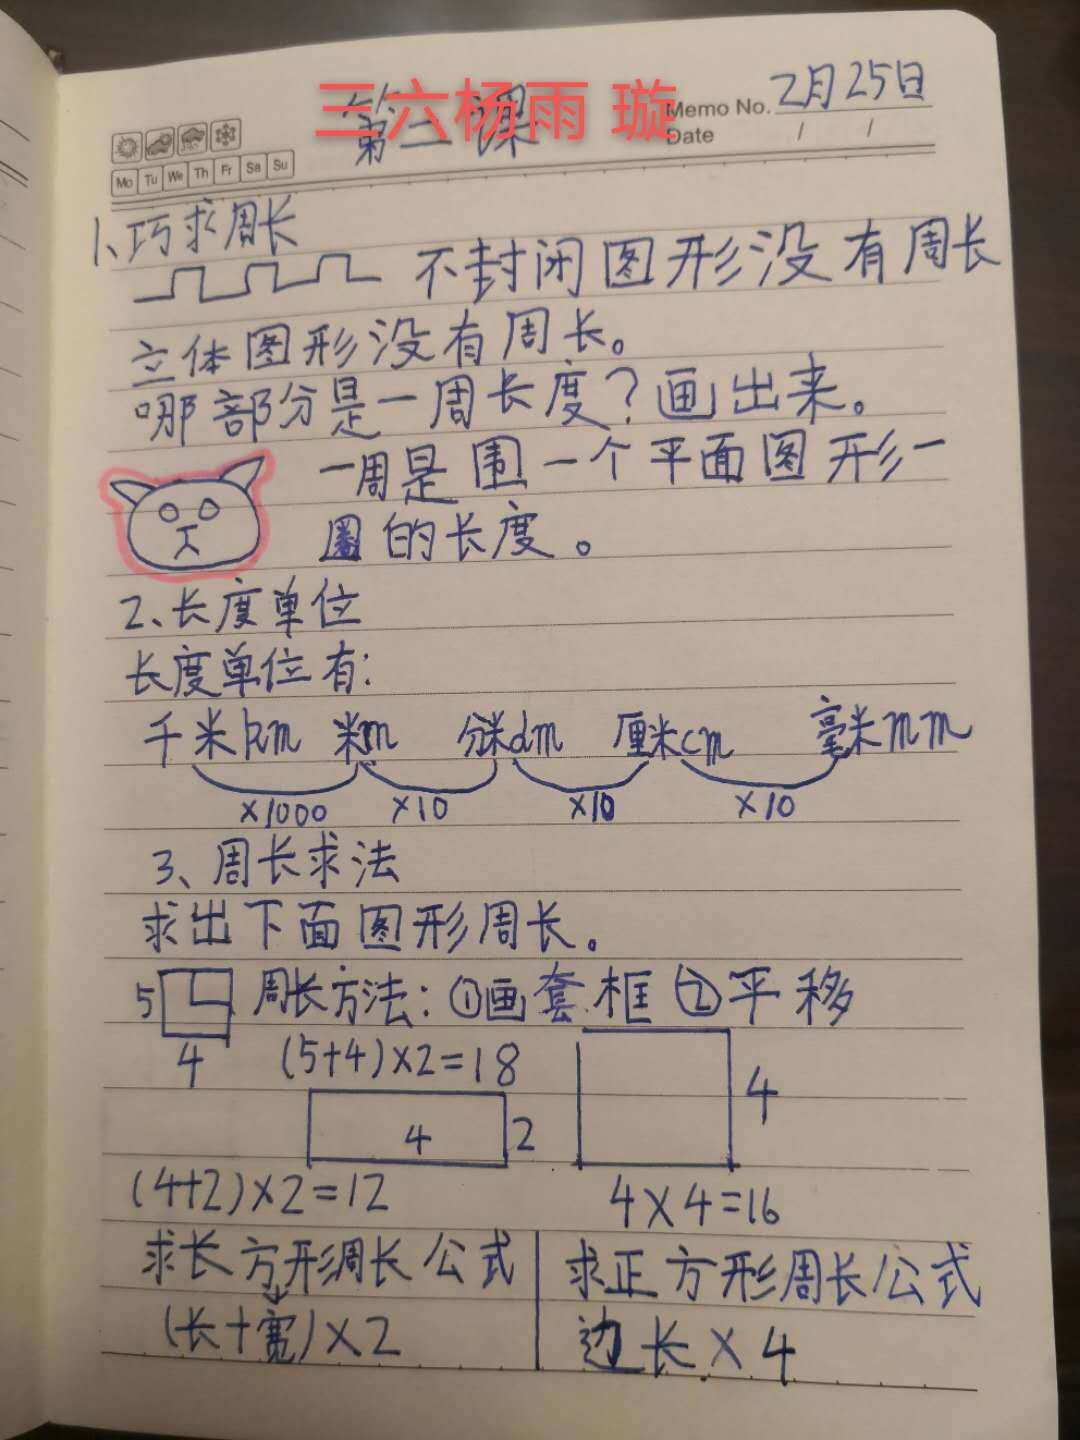 三六杨雨 璇
第二课
Memo No. 2月25日
Date / /
Mo Tu We Th Fr Sa Su
1、巧求周长
不封闭图形没有周长
立体图形没有周长。
哪部分是一周长度?画出来。
一周是围一个平面图形一
圈的长度。
2、长度单位
长度单位有:
千米km 米m 分米dm 厘米cm 毫米mm
×1000 ×10 ×10 ×10
3、周长求法
求出下面图形周长。
5 周长方法:①画套框②平移
4 (5+4)×2=18
4
4 2
(4+2)×2=12 4×4=16
求长方形周长公式 求正方形周长公式
(长+宽)×2 边长×4